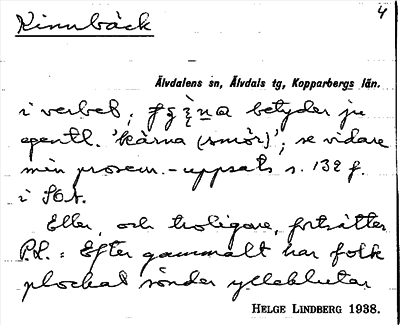 Kinnbäck
4
Älvdalens sn, Älvdals tg, Kopparbergs län.
i verbet; betyder ju
egentl. 'kärna (smör)'; se vidare
min prosem.-uppsats s. 132 f.
i
Eller, och troligare, fortsätter
P.L.: Efter gammalt har folk
plockat sönder ylleklutar
HELGE LINDBERG 1938.